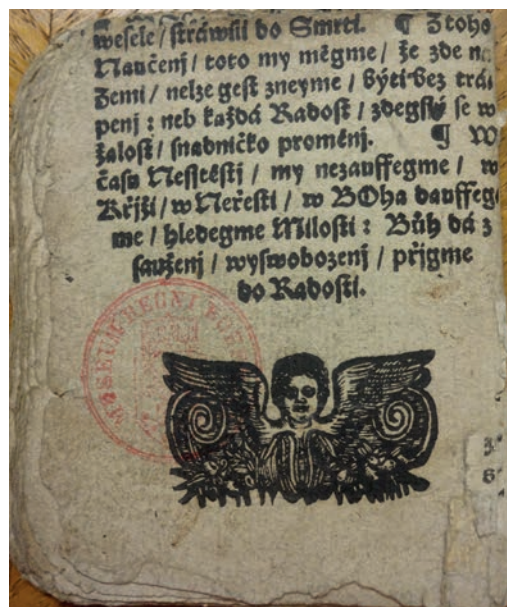 wesele / stráwili do Smrti. ¶ Z toho
Naučenj / toto my měgme / že zde na
Zemi / nelze gest zneyme / býti bez trá
penj : neb každá Radost / zdegssý se w
žalost / snadničko proměnj. ¶ W
času Nesstěstj / my nezauffegme / w
Křjži / w Neřesti / w BOha dauffeg
me / hledegme Milosti : Bůh dá z
saužení / wyswobozenj / přigme
do Radosti.
MUSEUM REGNI BOH